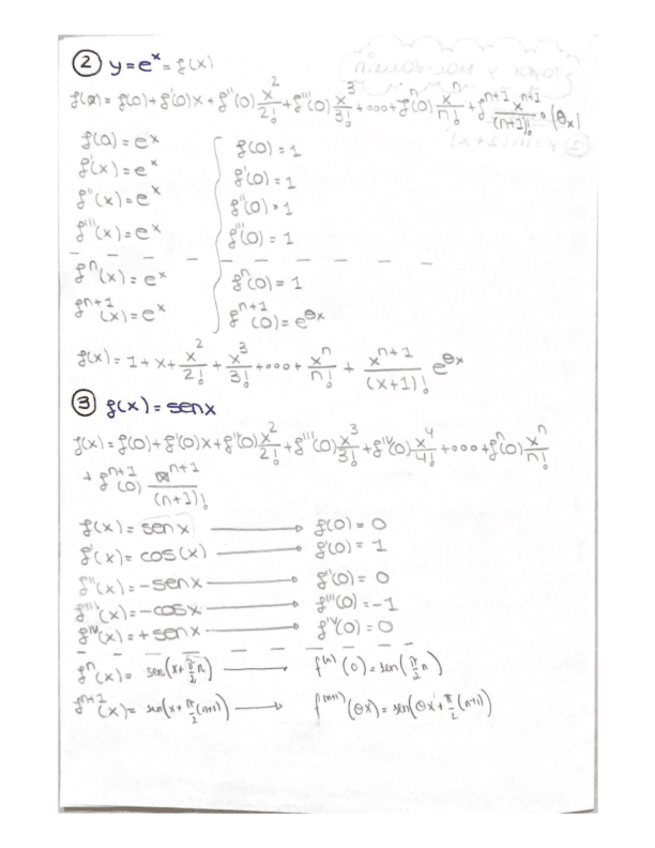 ② y=e^x = f(x)
f(x) = f(0)+f'(0)x+f''(0) x^2/2! + f'''(0) x^3/3! +...+ f^n(0) x^n/n! + f^{n+1} x^{n+1}/(n+1)! · (θx)
f(0) = e^x f(0) = 1
f'(x) = e^x f'(0) = 1
f''(x) = e^x f''(0) = 1
f'''(x) = e^x f'''(0) = 1
f^n(x) = e^x f^n(0) = 1
f^{n+1}(x) = e^x f^{n+1}(0) = e^{θx}
f(x) = 1 + x + x^2/2! + x^3/3! +....+ x^n/n! + x^{n+1}/(x+1)! e^{θx}
③ f(x) = senx
f(x) = f(0)+f'(0)x+f''(0) x^2/2! + f'''(0) x^3/3! + f^{IV}(0) x^4/4! +...+ f^n(0) x^n/n!
+ f^{n+1}(0) x^{n+1}/(n+1)!
f(x) = sen x → f(0) = 0
f'(x) = cos(x) → f'(0) = 1
f''(x) = -sen x → f''(0) = 0
f'''(x) = -cosx → f'''(0) = -1
f^{IV}(x) = + sen x → f^{IV}(0) = 0
f^n(x) = sen(x+π/2 n) → f^{(n)}(0) = sen(π/2 n)
f^{n+1}(x) = sen(x+π/2 (n+1)) → f^{(n+1)}(θx) = sen(θx+π/2 (n+1))